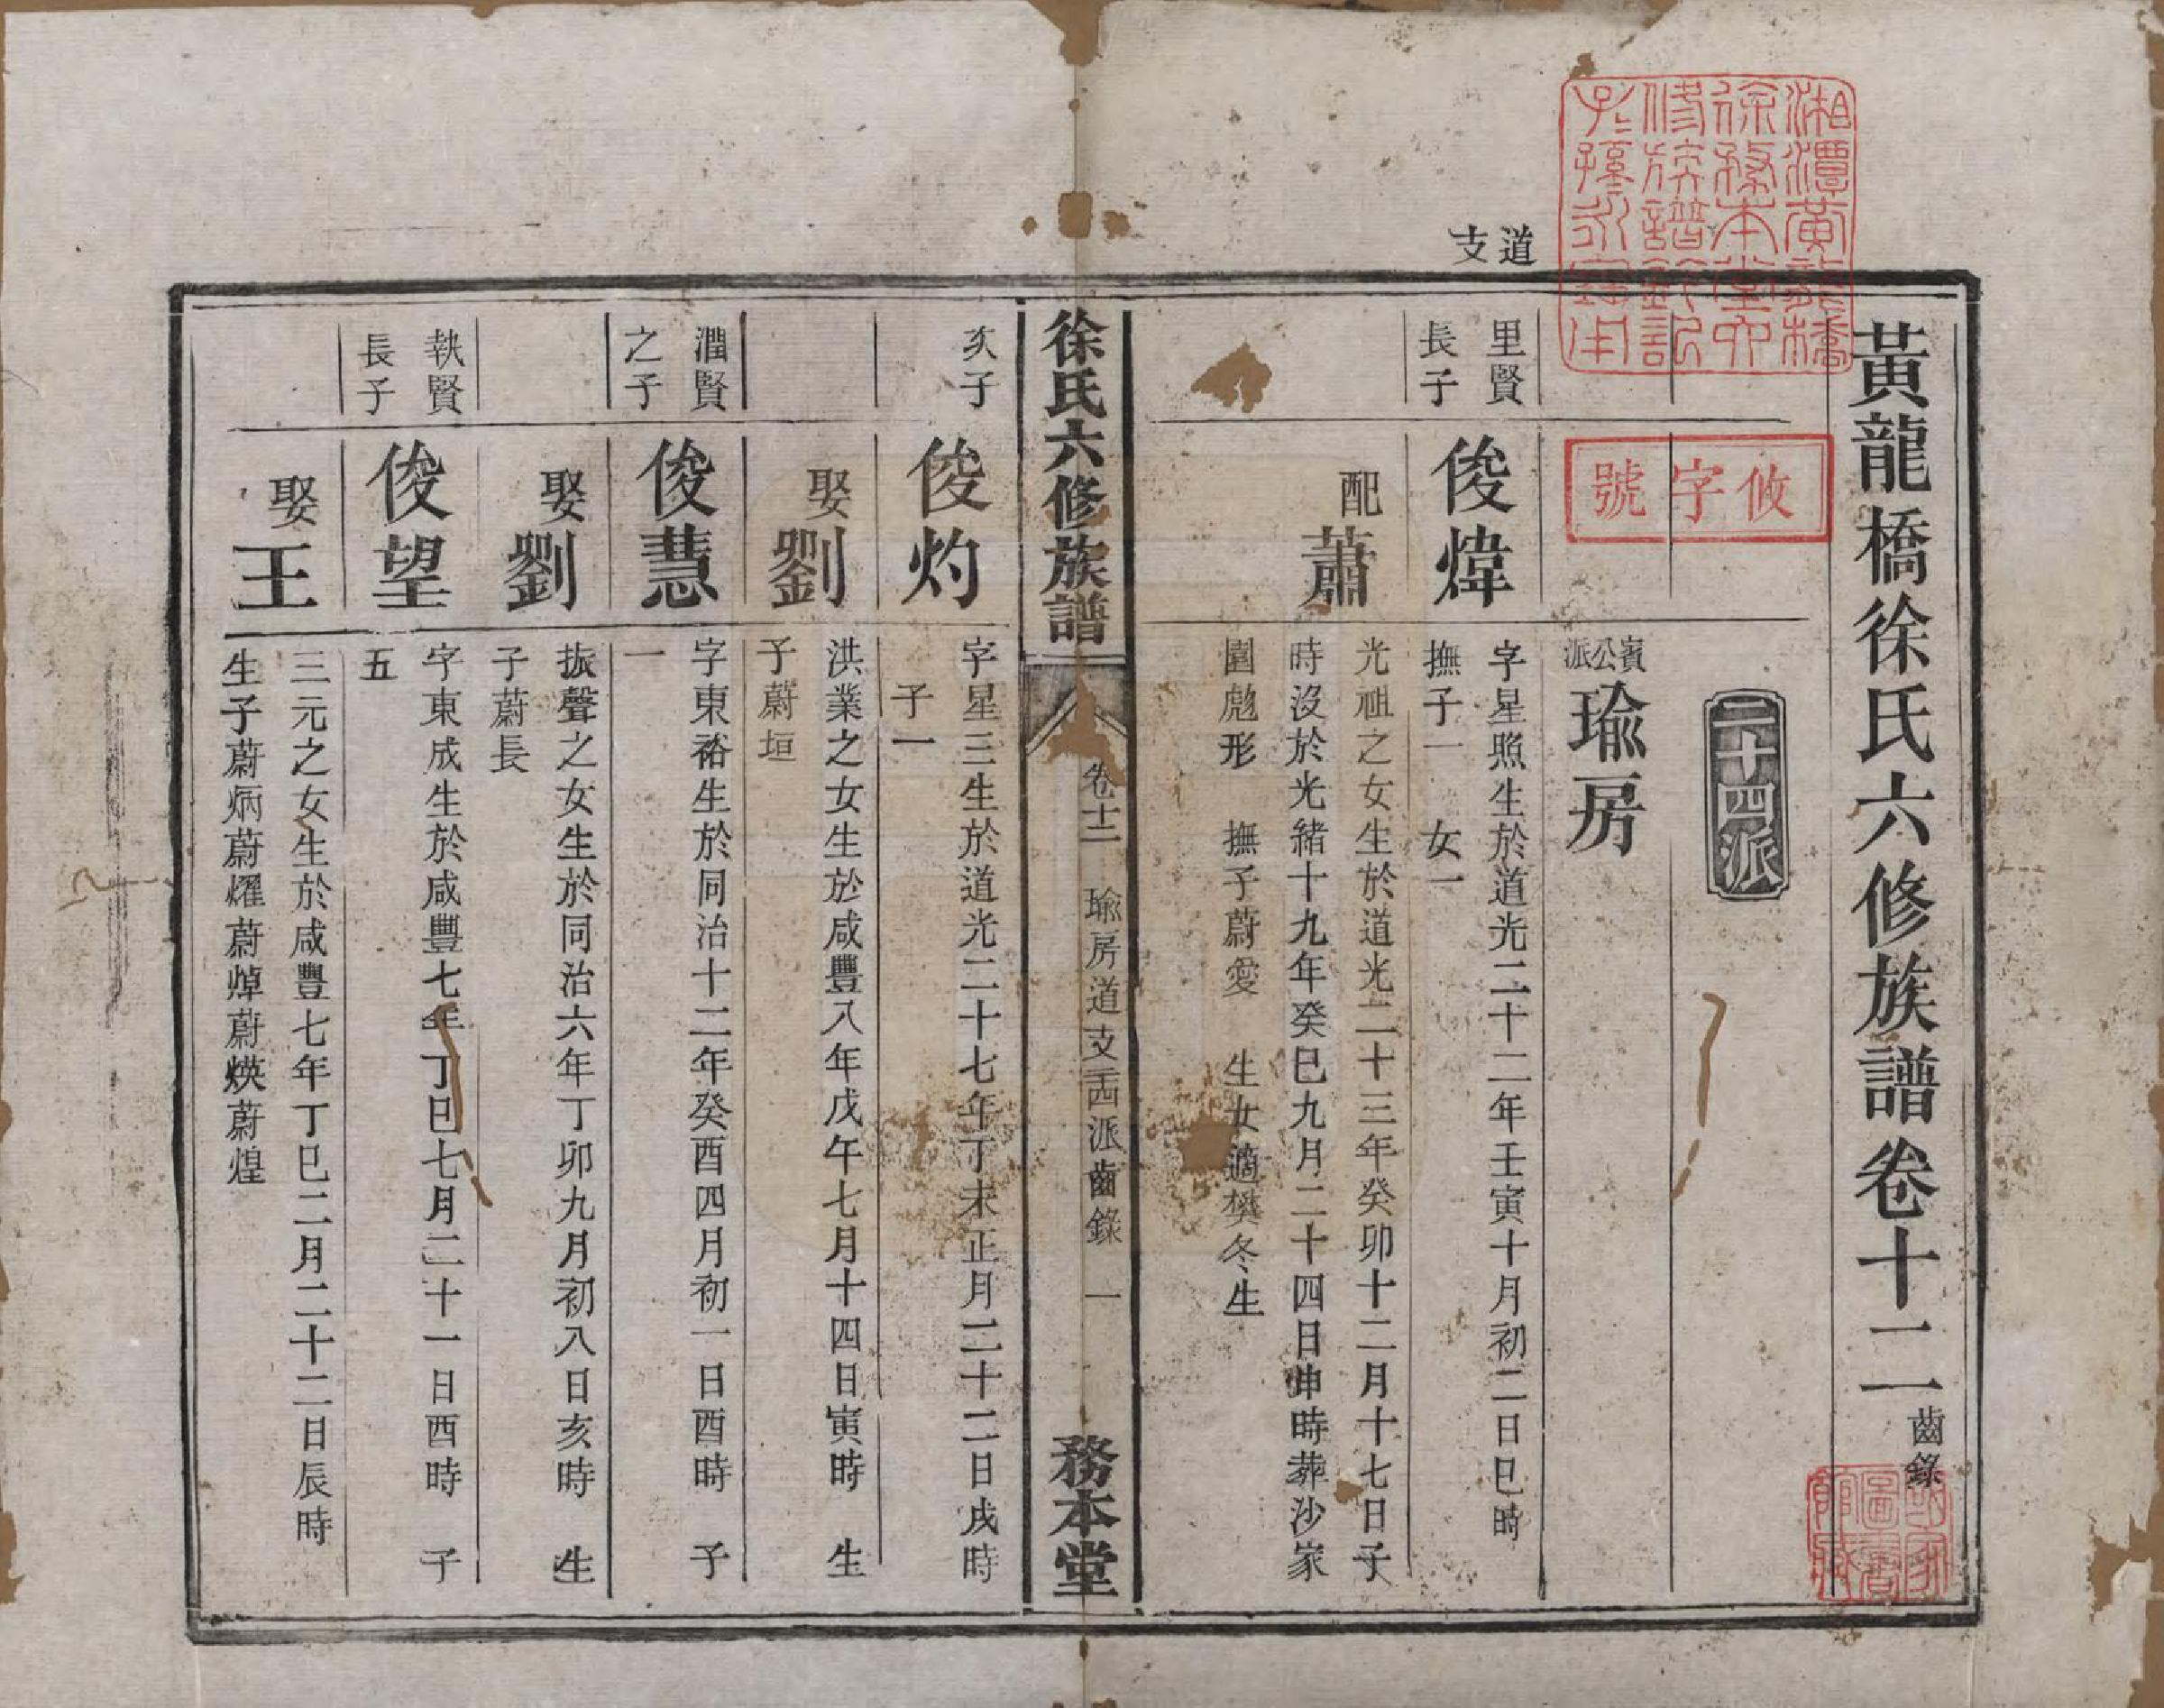 黃龍橋徐氏六修族譜卷十二 齒錄
湘潭黃龍橋
徐務本堂卯
修族譜鈐記
子孫永寶用
攸字號
二十四派
賓公派 瑜房
道支
里賢長子
俊煒
字星照生於道光二十二年壬寅十月初二日巳時
撫子一 女一
配蕭
光祖之女生於道光二十三年癸卯十二月十七日子
時沒於光緒十九年癸巳九月二十四日申時葬沙家
園彪形 撫子蔚愛 生女適樊冬生
徐氏六修族譜 卷十二 瑜房道支二十四派齒錄 一 務本堂
次子
俊灼
字星三生於道光二十七年丁未正月二十二日戌時
子一
娶劉
洪業之女生於咸豐八年戊午七月十四日寅時 生
子蔚垣
潤賢之子
俊慧
字東裕生於同治十二年癸酉四月初一日酉時 子
一
娶劉
振聲之女生於同治六年丁卯九月初八日亥時 生
子蔚長
執賢長子
俊望
字東成生於咸豐七年丁巳七月二十一日酉時 子
五
娶王
三元之女生於咸豐七年丁巳二月二十二日辰時
生子蔚炳蔚燿蔚焯蔚煐蔚煌
國家圖書館藏